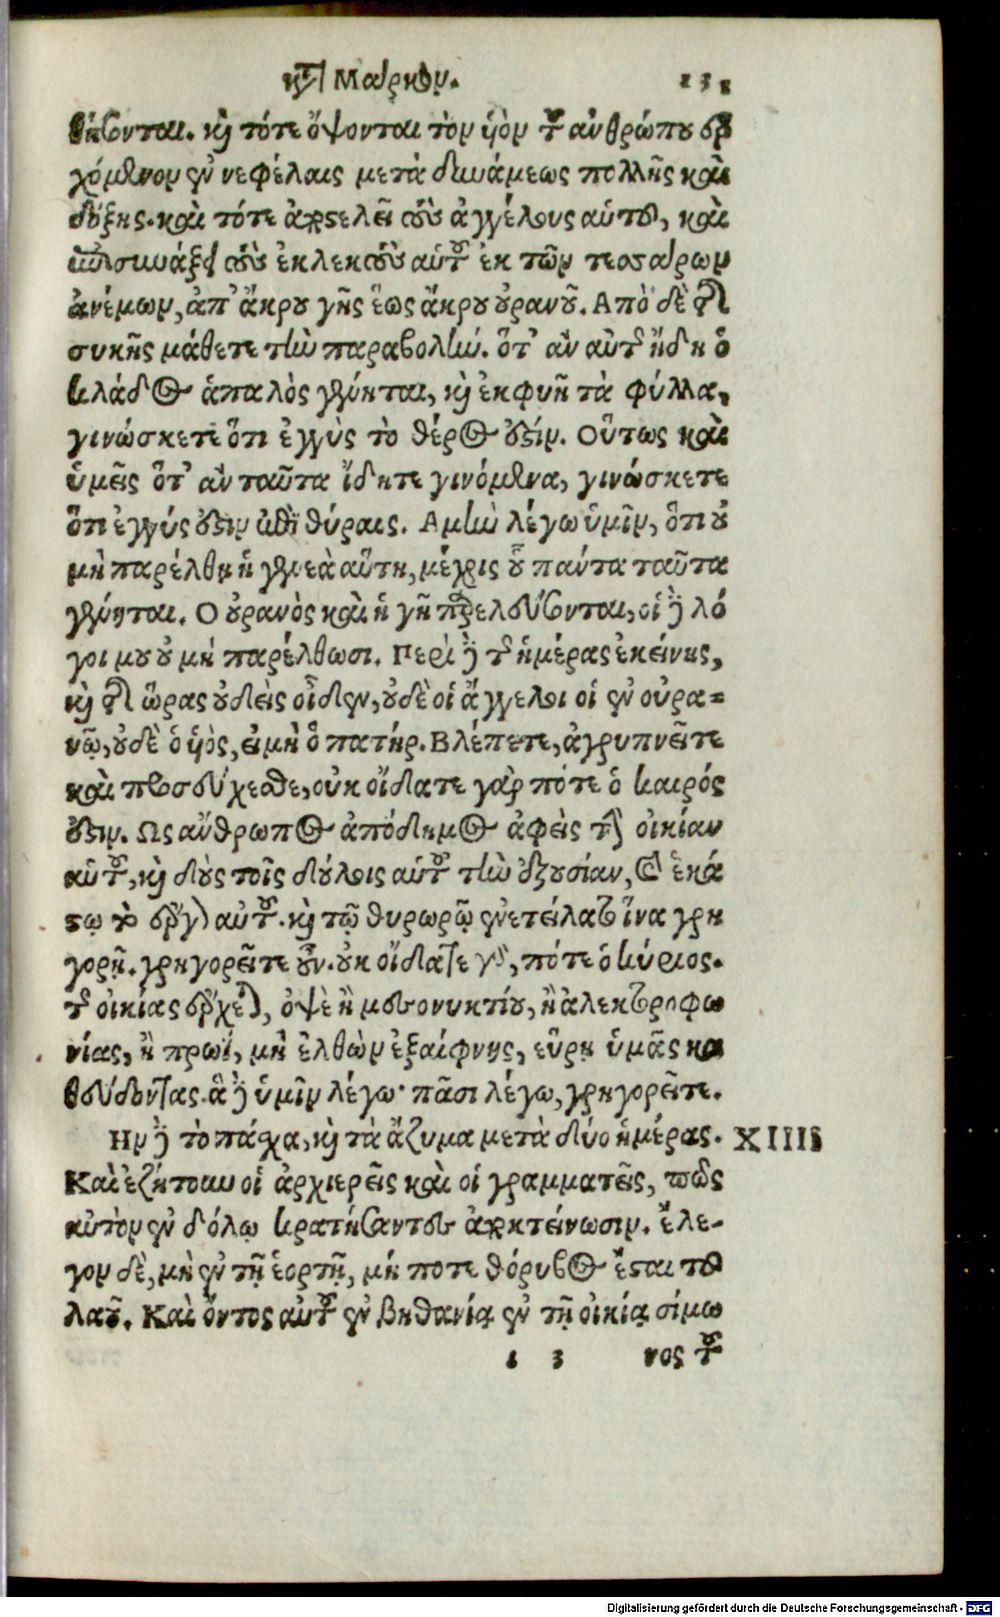 κτ̀ Μαρκον. 131
θήσονται. κὶ τότε ὄψονται τὸν ὑὸν τοῦ ἀνθρώπου ἐρ
χόμενον ἐν νεφέλαις μετὰ δυνάμεως πολλῆς καὶ
δόξης. καὶ τότε ἀποστελεῖ τοὺς ἀγγέλους αὑτοῦ, καὶ
ἐπισυνάξει τοὺς ἐκλεκτοὺς αὑτοῦ ἐκ τῶν τεσσάρων
ἀνέμων, ἀπ' ἄκρου γῆς ἕως ἄκρου οὐρανοῦ. Απὸ δὲ τῆς
συκῆς μάθετε τὴν παραβολήν. ὅτ' ἀν αὐτῆς ἤδη ὁ
κλάδος ἁπαλὸς γένηται, κὶ ἐκφυῆ τὰ φύλλα,
γινώσκετε ὅτι ἐγγὺς τὸ θέρος ἐστίν. Οὕτως καὶ
ὑμεῖς ὅτ' ἀν ταῦτα ἴδητε γινόμενα, γινώσκετε
ὅτι ἐγγύς ἐστιν ἐπὶ θύραις. Αμὴν λέγω ὑμῖν, ὅτι οὐ
μὴ παρέλθῃ ἡ γενεὰ αὕτη, μέχρις οὗ πάντα ταῦτα
γένηται. Ο οὐρανὸς καὶ ἡ γῆ παρελεύσονται, οἱ δὲ λό
γοι μου οὐ μὴ παρέλθωσι. Περὶ δὲ τῆς ἡμέρας ἐκείνης,
κὶ τῆς ὥρας οὐδεὶς οἶδεν, οὐδὲ οἱ ἄγγελοι οἱ ἐν οὐρα=
νῷ, οὐδὲ ὁ ὑὸς, εἰ μὴ ὁ πατήρ. Βλέπετε, ἀγρυπνεῖτε
καὶ προσεύχεσθε, οὐκ οἴδατε γὰρ πότε ὁ καιρός
ἐστιν. Ως ἄνθρωπος ἀπόδημος ἀφεὶς τὴν οἰκίαν
αὑτοῦ, κὶ δοὺς τοῖς δούλοις αὑτοῦ τὴν ἐξουσίαν, καὶ ἑκά
στῳ τὸ ἔργον αὐτοῦ. κὶ τῷ θυρωρῷ ἐνετείλατο ἵνα γρη
γορῇ. γρηγορεῖτε οὖν. οὐκ οἴδατε γὰρ, πότε ὁ κύριος.
τῆς οἰκίας ἔρχεται, ὀψὲ ἢ μεσονυκτίου, ἢ ἀλεκτοροφω
νίας, ἢ πρωΐ, μὴ ἐλθὼν ἐξαίφνης, εὕρῃ ὑμᾶς κα
θεύδοντας. ἃ δὲ ὑμῖν λέγω· πᾶσι λέγω, γρηγορεῖτε.
Ην δὲ τὸ πάσχα, κὶ τὰ ἄζυμα μετὰ δύο ἡμέρας. XIIII
Καὶ ἐζήτουν οἱ ἀρχιερεῖς καὶ οἱ γραμματεῖς, πῶς
αὐτὸν ἐν δόλῳ κρατήσαντες ἀποκτείνωσιν. ἔλε-
γον δὲ, μὴ ἐν τῇ ἑορτῇ, μή ποτε θόρυβος ἔσται τοῦ
λαοῦ. Καὶ ὄντος αὐτοῦ ἐν βηθανίᾳ ἐν τῇ οἰκίᾳ σίμω
ι 3 νος τοῦ
Digitalisierung gefördert durch die Deutsche Forschungsgemeinschaft - DFG